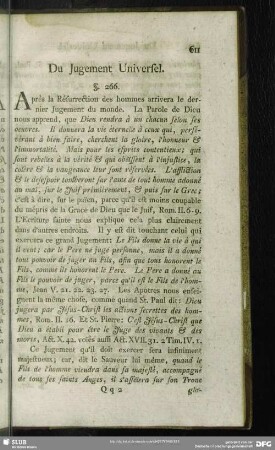 611
Du Jugement Universel.
§. 266.
Après la Résurrection des hommes arrivera le der-
nier Jugement du monde. La Parole de Dieu
nous apprend, que Dieu rendra à un chacun selon ses
oeuvres. Il donnera la vie éternelle à ceux qui, persé-
vérant à bien faire, cherchent la gloire, l'honneur &
l'immortalité. Mais pour les esprits contentieux; qui
sont rebelles à la vérité & qui obéissent à l'injustice, la
colère & la vangeance leur sont réservées. L'affliction
& le désespoir tomberont sur l'ame de tout homme adonné
au mal, sur le Juif prémièrement, & puis sur le Grec;
c'est à dire, sur le païen, parce qu'il est moins coupable
du mépris de la Grace de Dieu que le Juif, Rom. II. 6-9.
L'Ecriture sainte nous explique cela plus clairement
dans d'autres endroits. Il y est dit touchant celui qui
exercera ce grand Jugement: Le Fils donne la vie à qui
il veut: car le Pere ne juge personne, mais il a donné
tout pouvoir de juger au Fils, afin que tous honorent le
Fils, comme ils honorent le Pere. Le Pere a donné au
Fils le pouvoir de juger, parce qu'il est le Fils de l'hom-
me, Jean V. 21. 22. 23. 27. Les Apôtres nous ensei-
gnent la même chose, comme quand St. Paul dit: Dieu
jugera par Jésus-Christ les actions secrettes des hom-
mes, Rom. II. 16. Et St. Pierre: C'est Jésus-Christ que
Dieu a établi pour être le Juge des vivants & des
morts, Act. X. 42. voïés aussi Act. XVII. 31. 2 Tim. IV, 1.
Ce Jugement qu'il doit exercer sera infiniment
majestueux; car, dit le Sauveur lui même, quand le
Fils de l'homme viendra dans sa majesté, accompagné
de tous ses saints Anges, il s'asseiera sur son Trone
Q q 2
SLUB
DFG